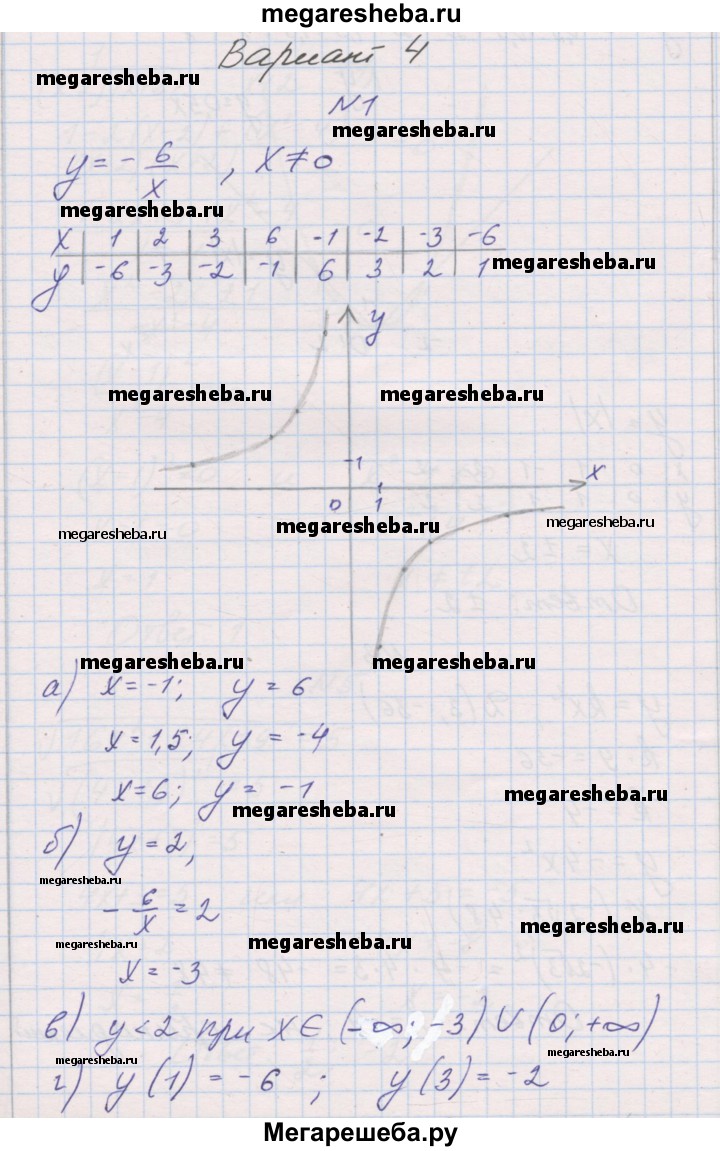 megaresheba.ru
Вариант 4
megaresheba.ru
N1
megaresheba.ru
y = - 6/x , x ≠ 0
megaresheba.ru
x | 1 | 2 | 3 | 6 | -1 | -2 | -3 | -6
y | -6 | -3 | -2 | -1 | 6 | 3 | 2 | 1
megaresheba.ru
y
megaresheba.ru megaresheba.ru
1
x
0 1
megaresheba.ru megaresheba.ru megaresheba.ru
megaresheba.ru megaresheba.ru
а) x = -1; y = 6
x = 1,5; y = -4
x = 6; y = -1
megaresheba.ru
megaresheba.ru
б) y = 2,
megaresheba.ru
- 6/x = 2
megaresheba.ru
megaresheba.ru megaresheba.ru
x = -3
в) y < 2 при x ∈ (-∞; -3) ∪ (0; +∞)
megaresheba.ru megaresheba.ru
г) y(1) = -6 ; y(3) = -2
megaresheba.ru megaresheba.ru
Мегарешеба.ру